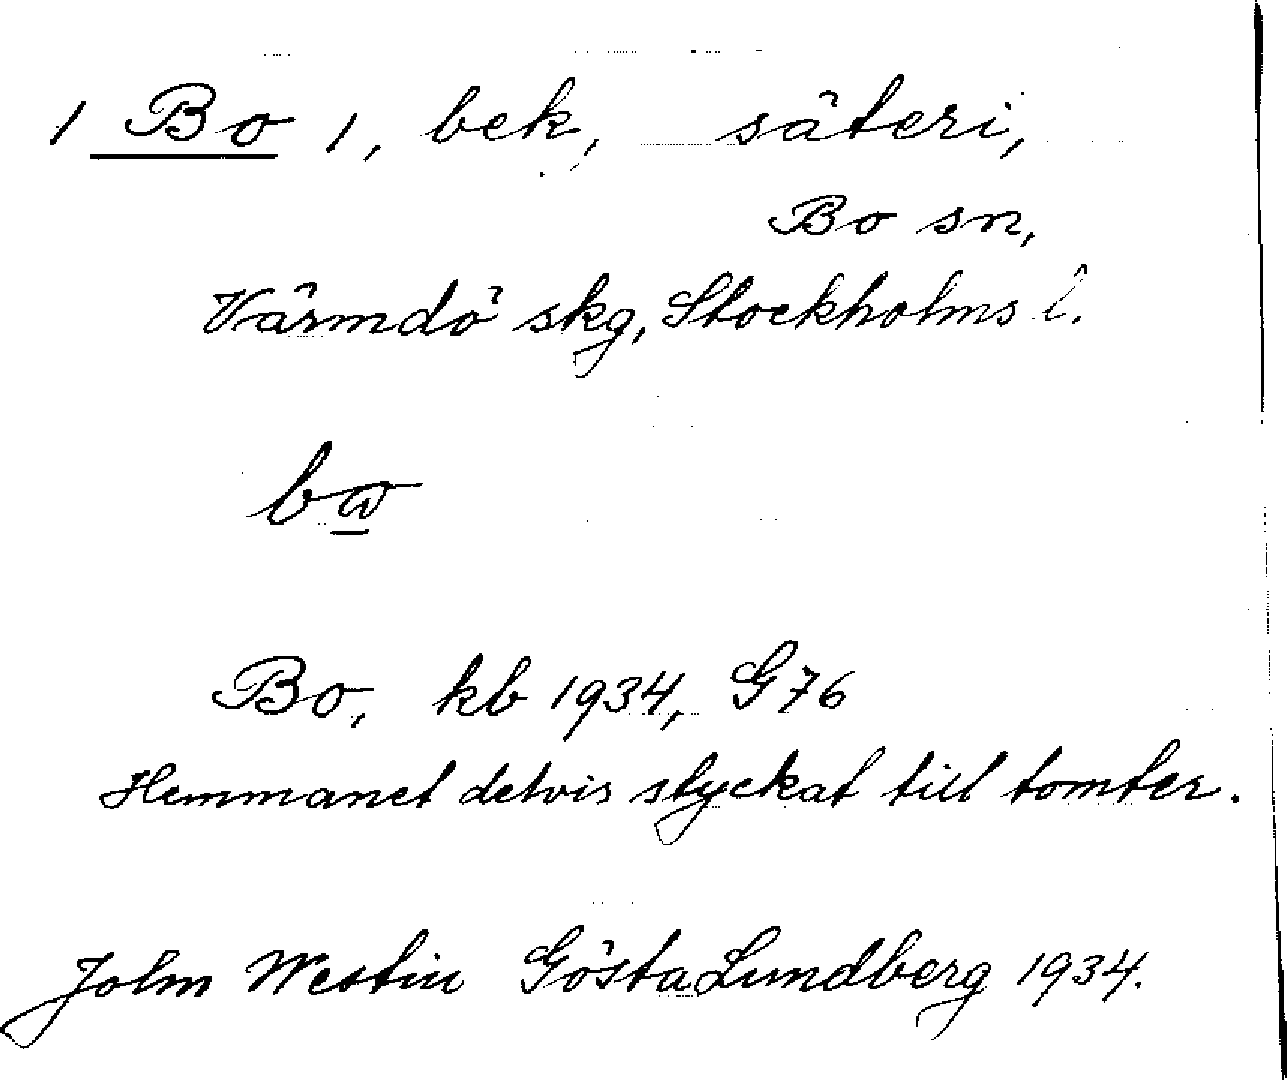 1 Bo 1, bek, säteri,
Bo sn,
Värmdö skg, Stockholms l.
Bo, kb 1934, G76
Hemmanet delvis styckat till tomter.
John Westin Gösta Lundberg 1934.